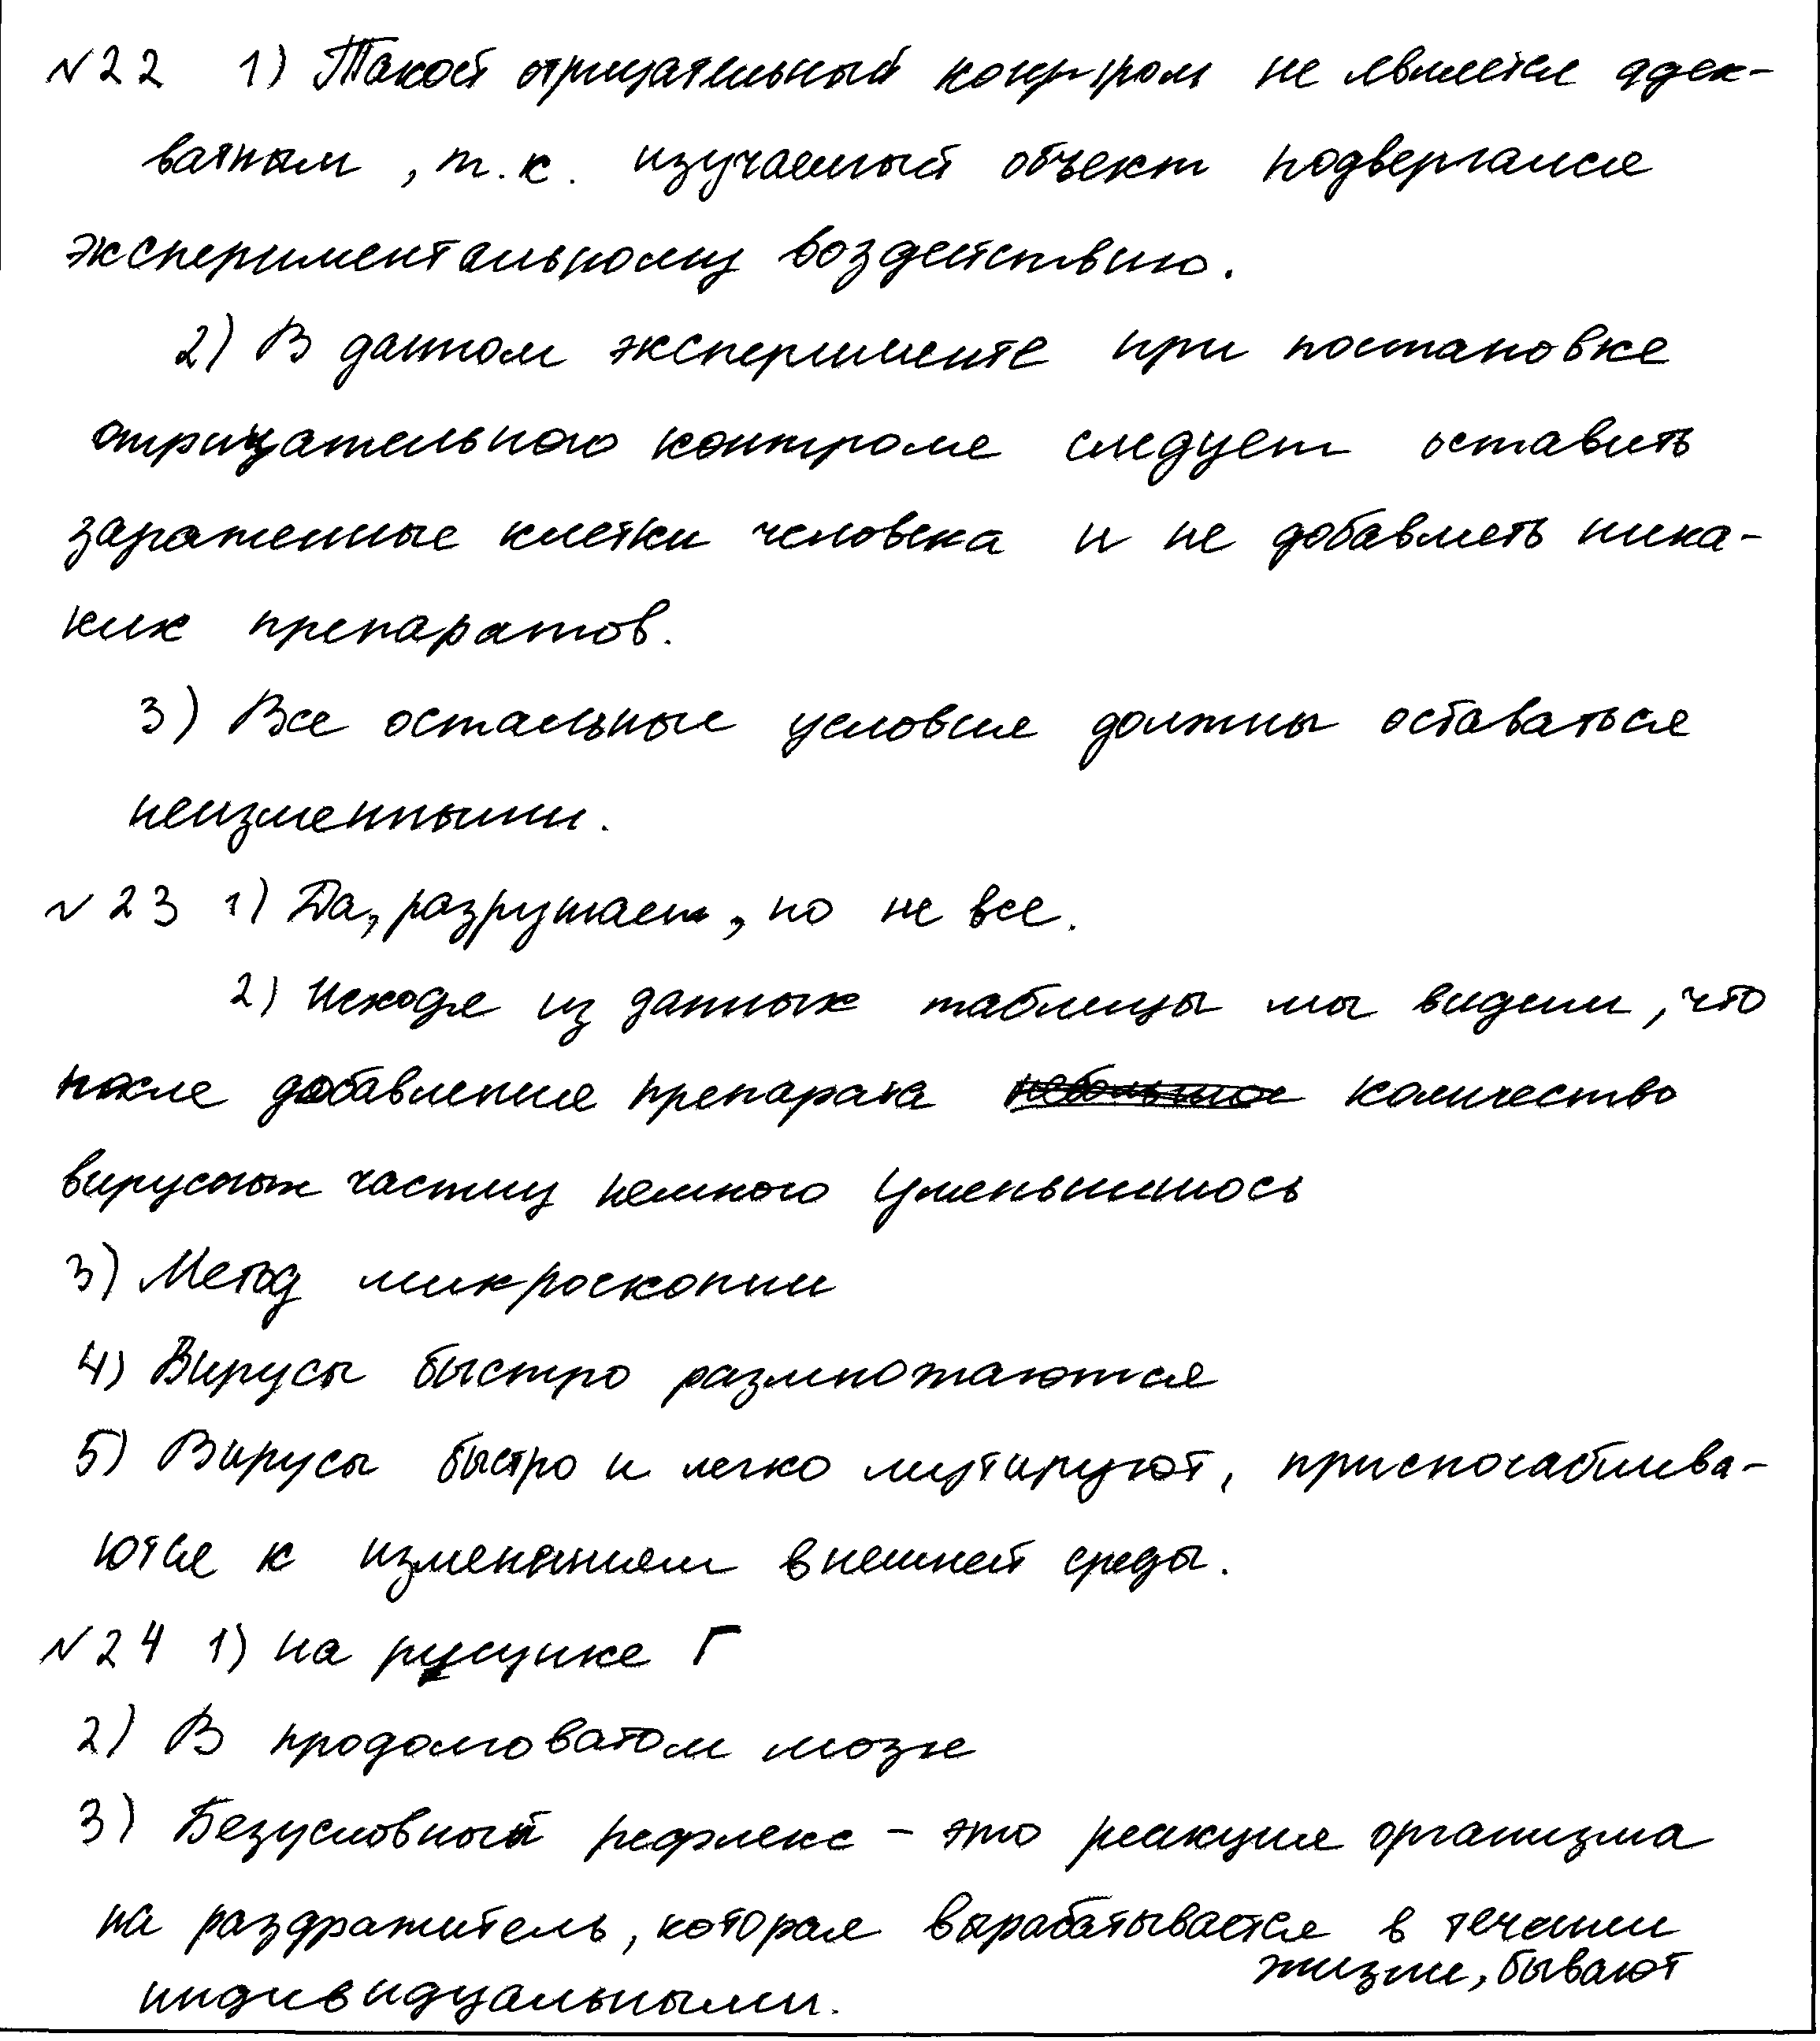 №22 1) Такой отрицательный контроль не является адек-
ватным, т.к. изучаемый объект подвергался
экспериментальному воздействию.
2) В данном эксперименте при постановке
отрицательного контроля следует оставить
зараженные клетки человека и не добавлять ника-
ких препаратов.
3) Все остальные условия должны оставаться
неизменными.
№23 1) Да, разрушает, но не все.
2) Исходя из данных таблицы мы видим, что
после добавления препарата небольшое количество
вирусных частиц немного уменьшилось
3) Метод микроскопии
4) Вирусы быстро размножаются
5) Вирусы быстро и легко мутируют, приспосаблива-
ются к изменениям внешней среды.
№24 1) на рисунке Г
2) В продолговатом мозге
3) Безусловный рефлекс - это реакция организма
на раздражитель, которая вырабатывается в течении
жизни, бывают
индивидуальными.